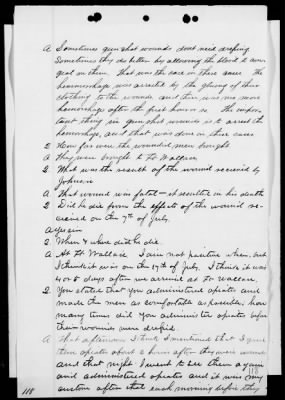 A Sometimes gun shot wounds dont need dressing.
Sometimes they do better by allowing the blood to con-
geal on them. That was the case in these cases. The
hemmorhage was arrested by the gluing of their
clothing to the wounds and there was no more
hemorhage after the first hour or so. The impor-
tant thing in gun shot wounds is to arrest the
hemorhage, and that was done in these cases
Q How far were the wounded men brought
A They were brought to Ft Wallace
Q What was the result of the wound received by
Johnson
A That wound was fatal — it resulted in his death
Q Did he die from the effects of the wound re-
ceived on the 7th of July.
A Yes sir
Q When & where did he die.
A At Ft Wallace I am not positive when, but
I think it was on the 17th of July. I think it was
4 or 5 days after we arrived at Ft Wallace.
Q You stated that you administered opiates and
made the men as comfortable as possible, how
many times did you administer opiates before
their wounds were dressed.
A That afternoon I think I mentioned that I gave
them opiates about 2 hours after they were wound-
and that night I went to see them again
and administered opiates and it was my
custom after that each morning before they
118